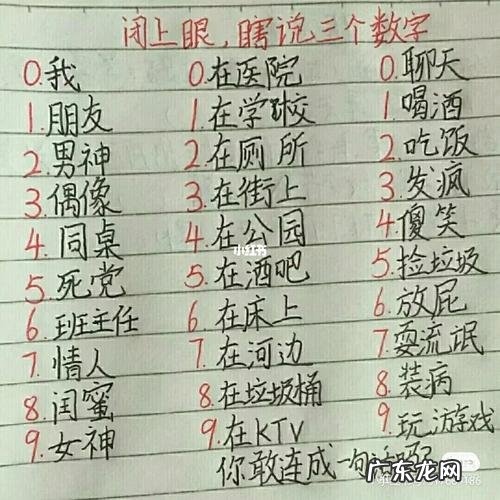 闭上眼，瞎说三个数字
0.我 0.在医院 0.聊天
1.朋友 1.在学校 1.喝酒
2.男神 2.在厕所 2.吃饭
3.偶像 3.在街上 3.发疯
4.同桌 4.在公园 4.傻笑
小红书
5.死党 5.在酒吧 5.捡垃圾
6.班主任 6.在床上 6.放屁
7.情人 7.在河边 7.耍流氓
8.闺蜜 8.在垃圾桶 8.装病
9.女神 9.在KTV 9.玩游戏
你敢连成一句话吗?
广东龙网